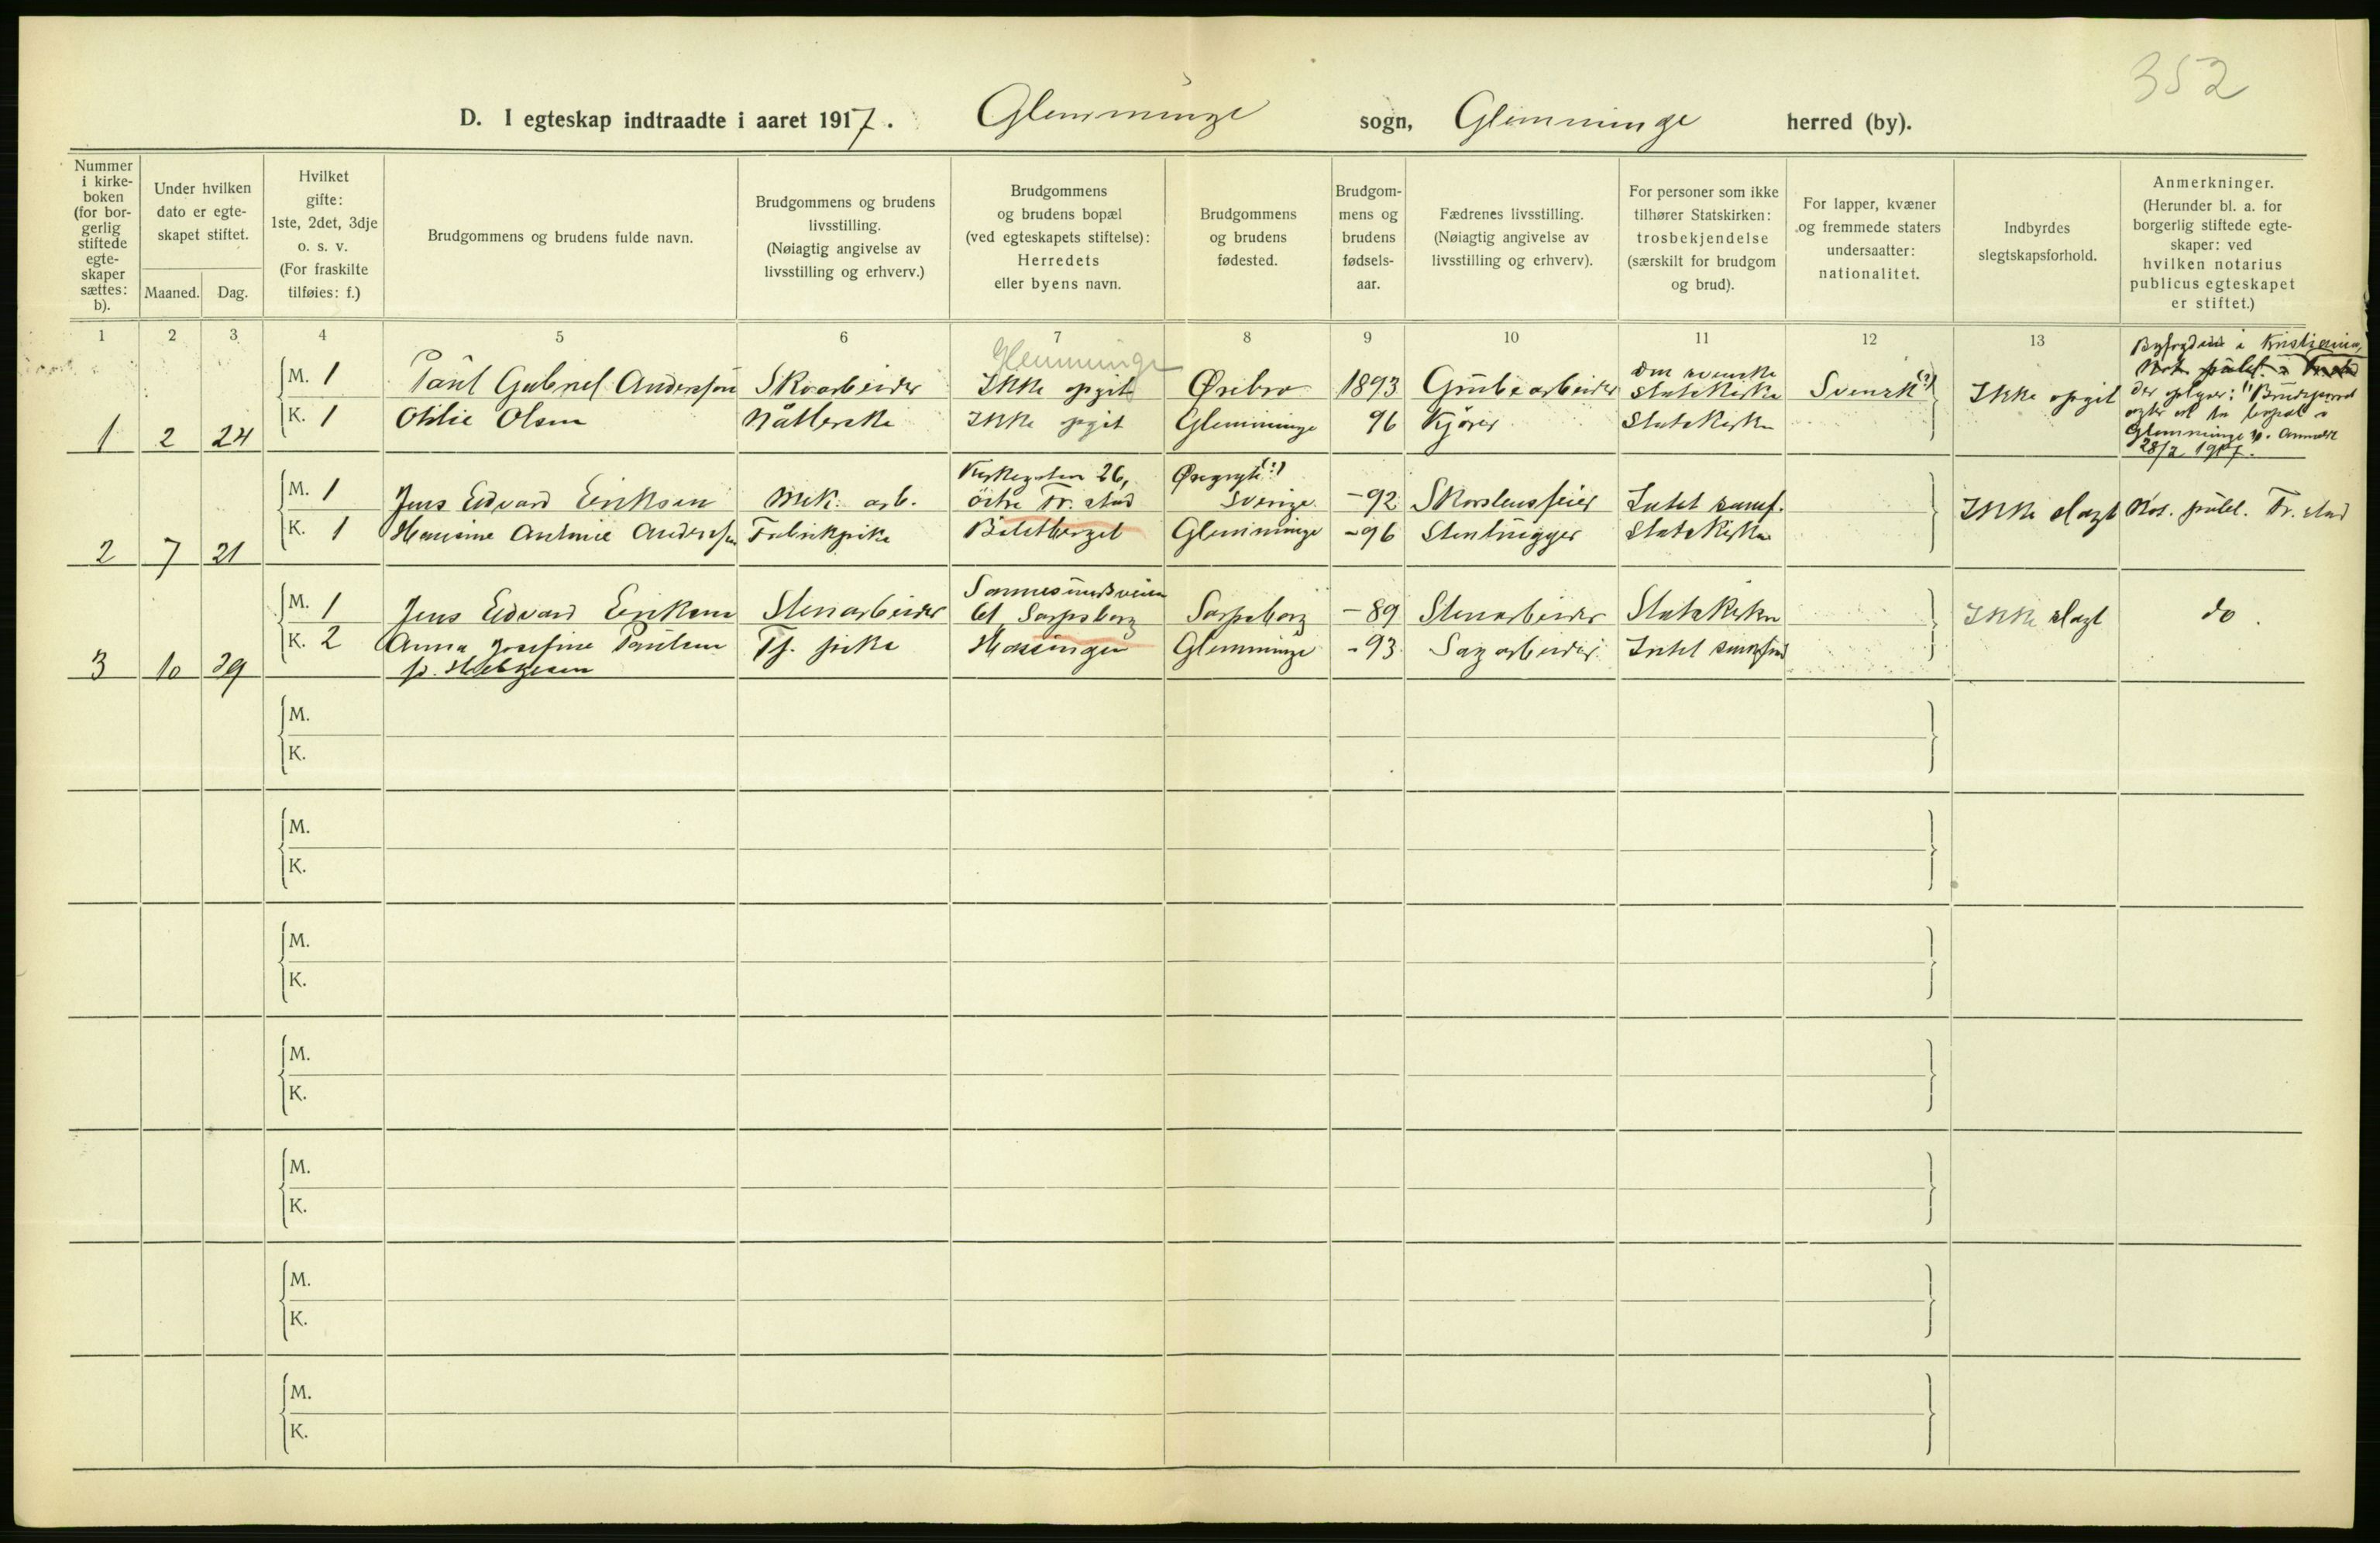 352
D. I egteskap indtraadte i aaret 1917. Glemminge sogn, Glemminge herred (by).
Nummer i kirke-boken (for bor-gerlig stiftede egte-skaper sættes: b).
Under hvilken dato er egte-skapet stiftet.
Maaned. Dag.
Hvilket gifte: 1ste, 2det, 3dje o. s. v. (For fraskilte tilføies: f.)
Brudgommens og brudens fulde navn.
Brudgommens og brudens livsstilling. (Nøiagtig angivelse av livsstilling og erhverv.)
Brudgommens og brudens bopæl (ved egteskapets stiftelse): Herredets eller byens navn.
Brudgommens og brudens fødested.
Brudgom-mens og brudens fødsels-aar.
Fædrenes livsstilling. (Nøiagtig angivelse av livsstilling og erhverv).
For personer som ikke tilhører Statskirken: trosbekjendelse (særskilt for brudgom og brud).
For lapper, kvæner og fremmede staters undersaatter: nationalitet.
Indbyrdes slegtskapsforhold.
Anmerkninger. (Herunder bl. a. for borgerlig stiftede egte-skaper: ved hvilken notarius publicus egteskapet er stiftet.)
1 2 3 4 5 6 7 8 9 10 11 12 13
Glemminge
M. 1 Paul Gabriel Andersson Skoarbeider Ikke opgit Ørebro 1893 Grubearbeider Den svenske statskirke Svensk (?)
K. 1 Otilie Olsen Nåtlerske Ikke opgit Glemminge 96 Kjører Statskirken
1 2 24
Ikke opgit
Byfogden i Kristiania,
der oplyser: "Brudeparret
agter at ta bopæl i
Glemminge". Anmeldt
28/2 1917.
M. 1 Jens Edvard Eriksen Mek. arb. Kirkegaten 26, østre Fr.stad Øregryte (?) Sverige -92 Skorstensfeier Intet samf.
K. 1 Hansine Antonie Andersen Fabrikpike Glemminge -96 Stenhugger Statskirken
2 7 21
Ikke slegt Not. publ. Fr.stad
M. 1 Jens Edvard Eriksen Stenarbeider Sannesundsveien 61, Sarpsborg Sarpsborg -89 Stenarbeider Statskirken
K. 2 Anna Josefine Paulsen Tj. pike Hassingen Glemminge -93 Sagarbeider Intet samfund
3 10 29
Ikke slegt do.
M.
K.
M.
K.
M.
K.
M.
K.
M.
K.
M.
K.
M.
K.